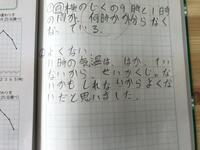 ①横のじくの9時と11時
の間が、何時か分からなく
なっている。
②よくない。
11時の気温は、はかってい
ないから、せいかくじゃな
いかもしれないからよくな
いだと思いました。